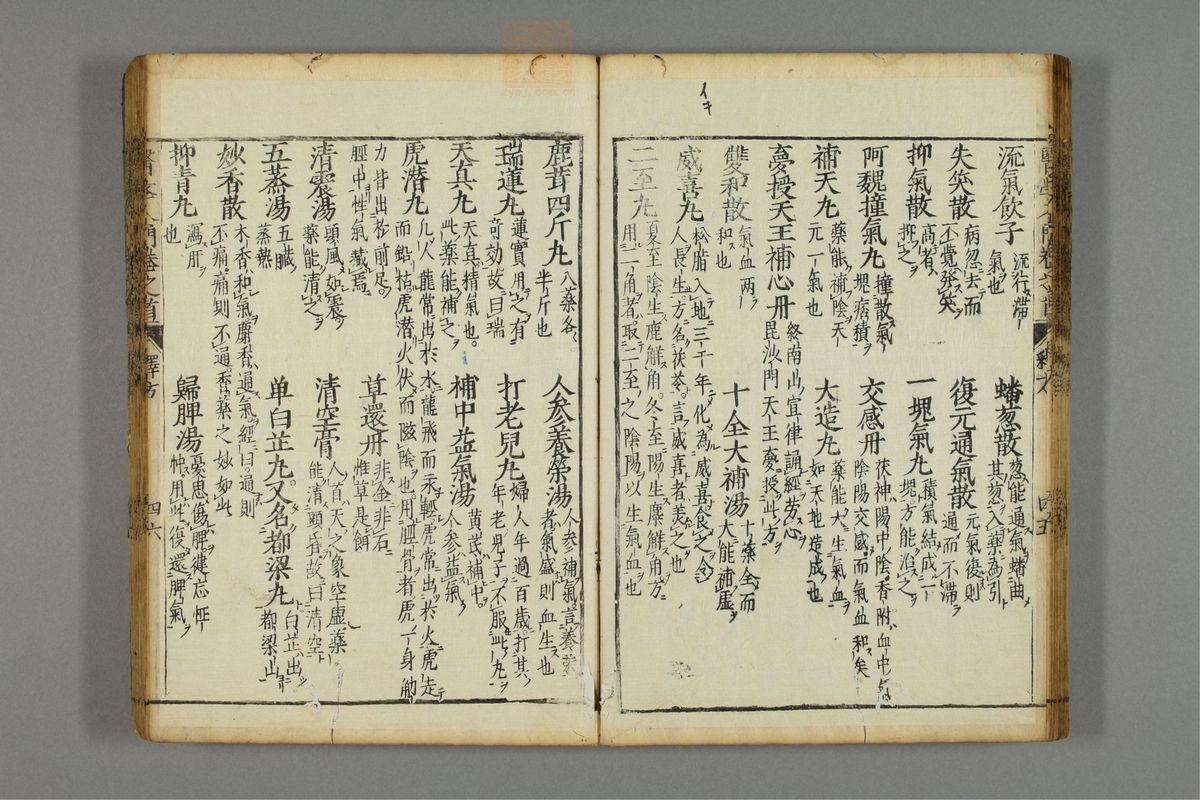 流氣飲子 流行滯氣也
蟠葱散 葱能通氣蟠曲其葱入藥為引
失笑散 病忽去而不覺發笑
復元通氣散 元氣復則通而不滯
抑氣散 高者抑之
一塊氣丸 積氣結成一塊方能治之
阿魏撞氣丸 撞散氣塊病積
交感丹 茯神陽中陰香附血中氣陰陽交感而氣血和矣
補天丸 藥能補陰天元一氣也
大造丸 藥能大生氣血如天地造成也
夢授天王補心丹 終南山宣律誦經勞心毘沙門天王夢授此方
雙和散 氣血兩和也
十全大補湯 十藥全而大能補虛
威喜丸 松脂入地三千年化為威喜食之令人長生方名茯苓言威喜者美之也
二至丸 夏至陰生鹿觧角冬至陽生麋觧角方用二角者取二至之陰陽以生氣血也
イキ
醫學入門卷之首 釋方 四五
鹿茸四斤丸 八藥各半斤也
人參養榮湯 人參補氣言養榮者氣盛則血生也
瑞蓮丸 蓮實用之有竒効故曰瑞
打老兒丸 婦人年過百歲打其年老兒子不服此丸
天真丸 天真精氣也此藥能補之
補中益氣湯 黃芪補中人參益氣
虎潜丸 凡人龍常出於水龍飛而汞輕虎常出於火虎走而鉛枯虎潜火伏而滋陰也用脛骨者虎一身觔力皆出於前足脛中性氣藏焉
草還丹 非金非石惟草是餌
清震湯 頭風如震藥能清之
清空膏 人首天之象空虛藥能清頭目故曰清空
五蒸湯 五臟蒸熱
单白芷丸又名都梁丸 白芷出都梁山
妙香散 木香和氣麝香通氣經曰通則不痛痛則不通香藥之妙如此
抑青丸 瀉肝也
歸脾湯 憂思傷脾健忘怔忡用此復還脾氣
醫學入門卷之首 釋方 四六